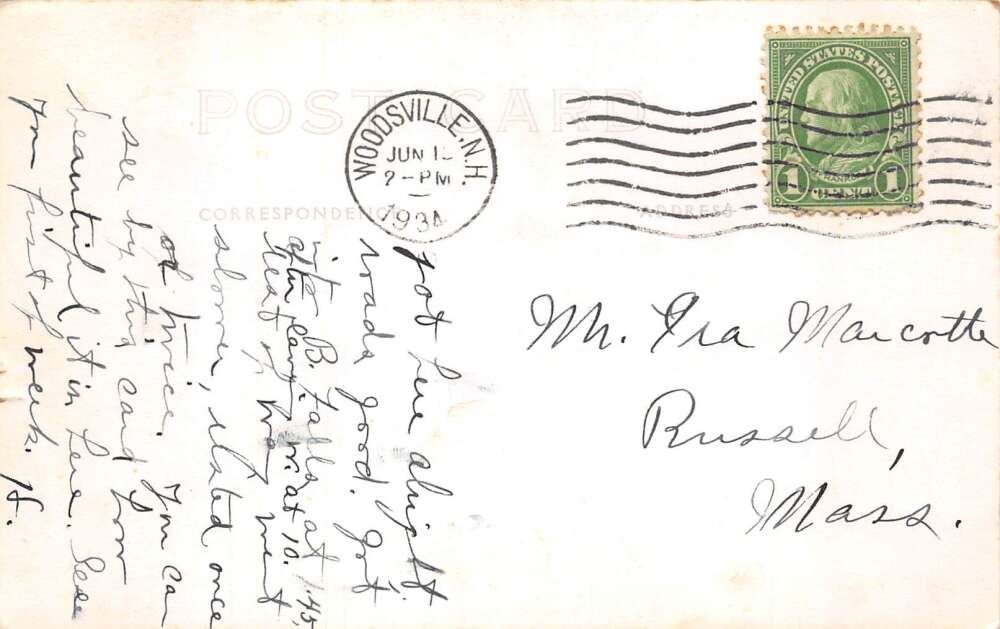 POST CARD
CORRESPONDENCE
ADDRESS
WOODSVILLE, N.H.
JUN 1
2-PM
1934
UNITED STATES POSTAGE
FRANKLIN
1 CENT 1
Mr. Ira Marcotte
Russell,
Mass.
got here alright.
roads good. got
into B. Falls at 1:45,
after leaving W. at 10.
Rest of way went
slower, rested once
or twice. You can
see by this card how
beautiful it is here. See
you first of week. H.